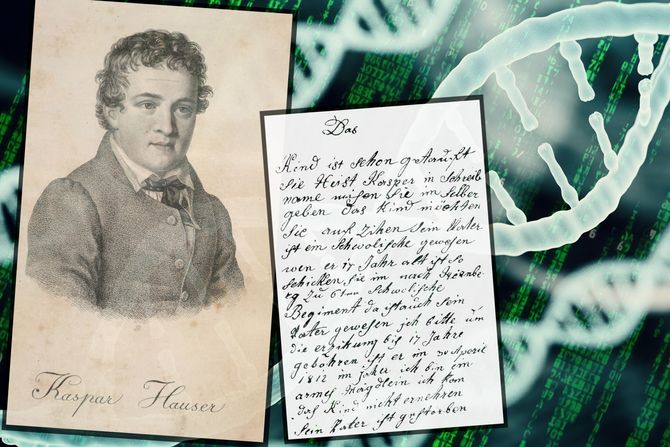 Kaspar Hauser
Das
Kind ist schon getauft
Sie Heist Kasper in Schreib
name misen Sie im selber
geben das Kind möchten
Sie auf Zihen Sein Vater
ist ein Schwolische gewesen
wen er 17 Jahr alt ist so
schicken Sie im nach Nirnbe
rg zu 6ten Schwolische
Regiment da ist auch sein
Vater gewesen ich bitte um
die erzikung bis 17 Jahre
gebohren ist er im 30 Aperil
1812 im jaher ich bin ein
armes Mägdlein ich kan
das Kind nicht ernehren
Sein Vater ist gestorben